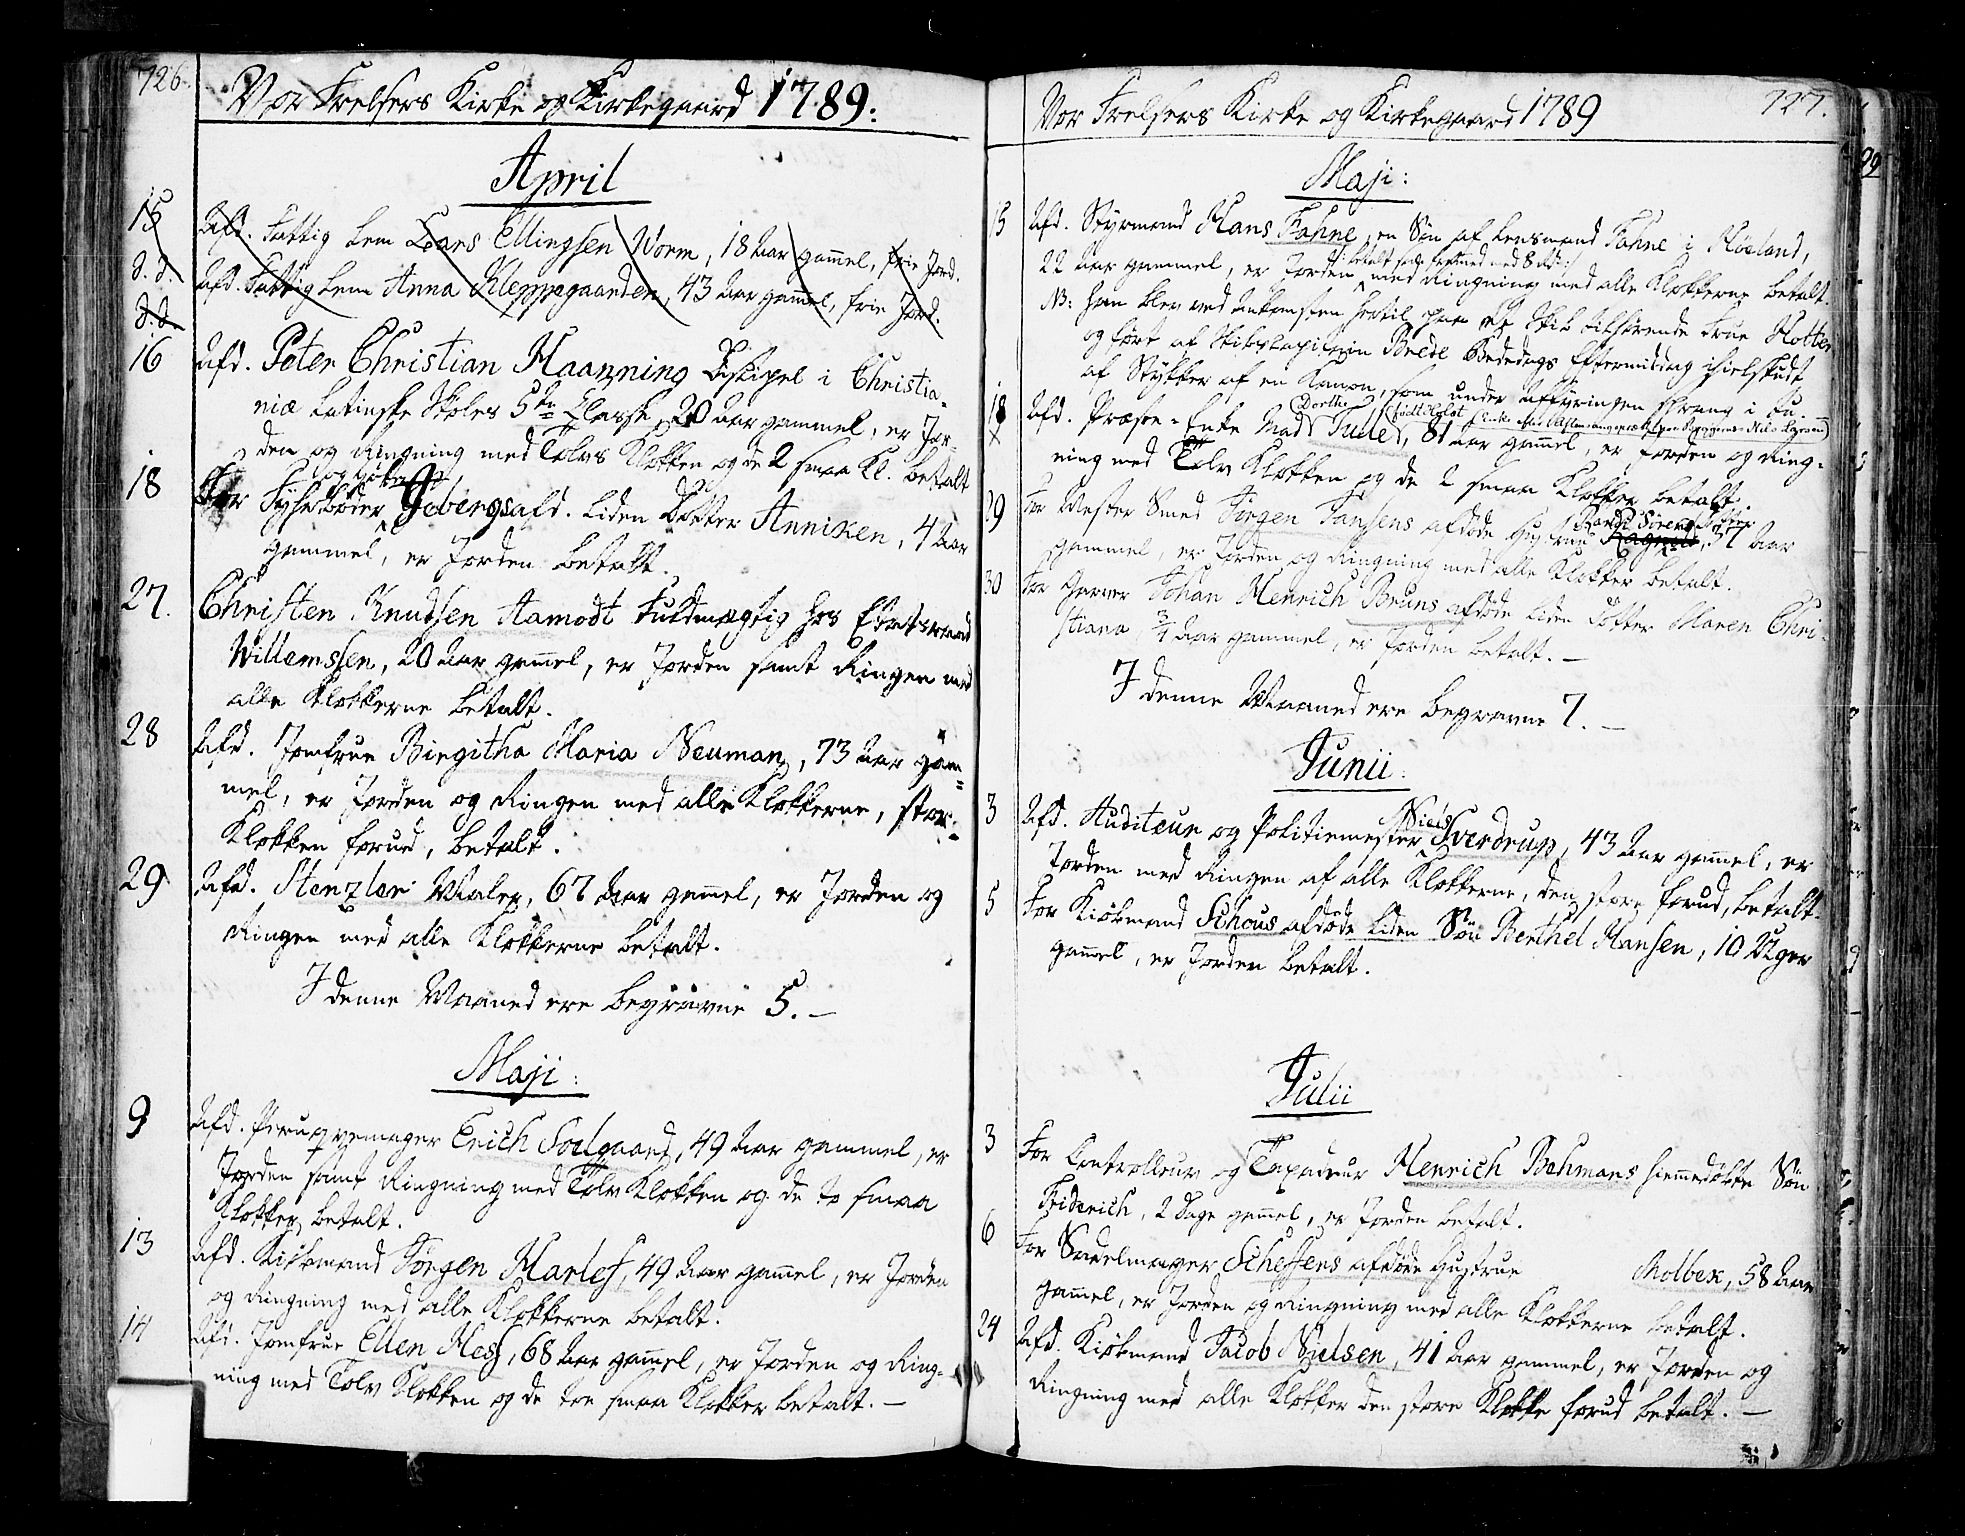 726.
Vor Frelsers Kirke og Kirkegaard 1789.
April
15 Afd. Fattig Lem Lars Ellingsen Worm, 18 Aar gammel, frie Jord.
d. d. Afd. Fattig Lem Anna Kleppegaarden, 43 Aar gam̄el, frie Jord.
d. d.
16 Afd. Peter Christian Haanning Discipel i Christia-
niæ Latinske Skoles 5te Classe, 20 Aar gammel, er Jor-
den og Ringning med Tolv Klokken og de 2 smaa Kl. betalt
18 For Fyhrbøder Gebergs afd. liden Dotter Anniken, 4 Aar
gammel, er Jorden betalt.
27. Christen Knudsen Aamodt Fuldmægtig hos Etatsraad
Willemssen, 20 Aar gam̄el, er Jorden samt Ringen med
alle Klokkerne betalt.
28 Afd. Jomfrue Birgitha Maria Neuman, 73 Aar gam-
mel, er Jorden og Ringen med alle Klokkerne, stor-
Klokken forud, betalt.
29 Afd. Stenzler Maler, 67 Aar gam̄el, er Jorden og
Ringen med alle Klokkerne betalt.
I denne Maaned ere begravne 5. —
Maji:
9 Afd. Peruqvemager Erich Soelgaard, 49 Aar gammel, er
Jorden samt Ringning med Tolv Klokken og de to smaa
Klokker betalt.
13 Afd. Kiøbmand Jørgen Harles, 49 Aar gam̄el, er Jorden
og Ringning med alle Klokkerne betalt.
14 Afd. Jomfrue Ellen Hess, 68 Aar gam̄el, er Jorden og Ring-
ning med Tolv Klokken og de toe smaa Klokker betalt. —
Vor Frelsers Kirke og Kirkegaard 1789
727.
Maji:
15 Afd. Styrmand Hans Fahne, en Søn af Lensmand Fahne i Høland,
22 Aar gammel, er Jorden med Ringning med alle Klokkerne betalt.
NB: han blev ved Ankomsten hertil paa et Skib tilhørende Frue Hotter
og ført af Skibskapitain Brede Bededags Eftermiddag ihielskudt
af Stykker af en Kanon, som under Affyringen sprang i Lu-
18 Afd. Præste-Enke Mad. Dorthe Tulle, 81 Aar gam̄el, er Jorden og Ring-
ning med Tolv Klokken og de 2 smaa Klokker betalt.
29 For Mester Smed Jørgen Jansens afdøde Hustrue Randi Sørens Dotter, 57 Aar
gammel, er Jorden og Ringning med alle Klokker betalt.
30 For Garver Johan Henrich Bruns afdøde liden Dotter Maren Chri-
stiana, 3/4 Aar gammel, er Jorden betalt. —
I denne Maaned ere begravne 7. —
Junii:
3 Afd. Auditeur og Politiemester Niels Sverdrup, 43 Aar gam̄el, er
Jorden med Ringen af alle Klokkerne, den store forud, betalt.
5 For Kiøbmand Schous afdøde liden Søn Berthel Hansen, 10 Uger
gam̄el, er Jorden betalt.
Julii
3 For Controlleur og Taxadeur Henrich Bohmans hiemmedøbte Søn
Friderich, 2 Dage gam̄el, er Jorden betalt.
6 For Sadelmager Scheffens afdøde Hustrue Molbex, 58 Aar
gam̄el, er Jorden og Ringning med alle Klokkerne betalt.
24 Afd. Kiøbmand Jacob Nielsen, 41 Aar gammel, er Jorden og
Ringning med alle Klokker den store Klokke forud betalt. —